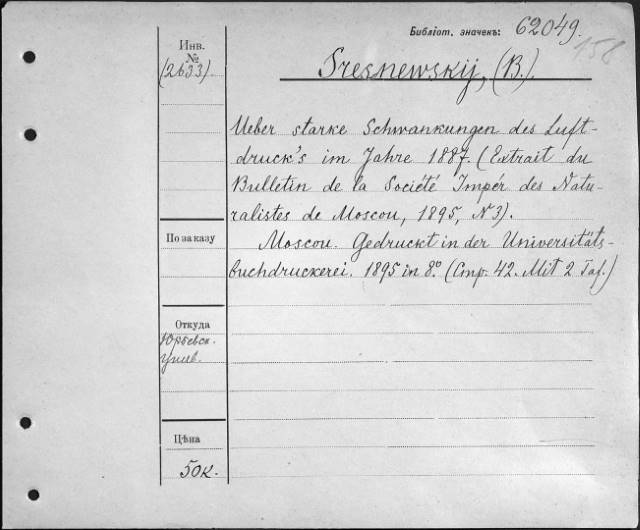 Библіот. значекъ: 62049.
158
Инв. №
(2633).
Sresnewskij, (B.).
Ueber starke Schwankungen des Luft-
druck's im Jahre 1887. (Extrait du
Bulletin de la Société Impér des Natu-
ralistes de Moscou, 1895, N3).
По заказу
Moscou. Gedruckt in der Universitäts-
buchdruckerei. 1895 in 8° (Стр. 42. Mit 2 Taf.)
Откуда
Юрьевск.
унив.
Цѣна
50к.